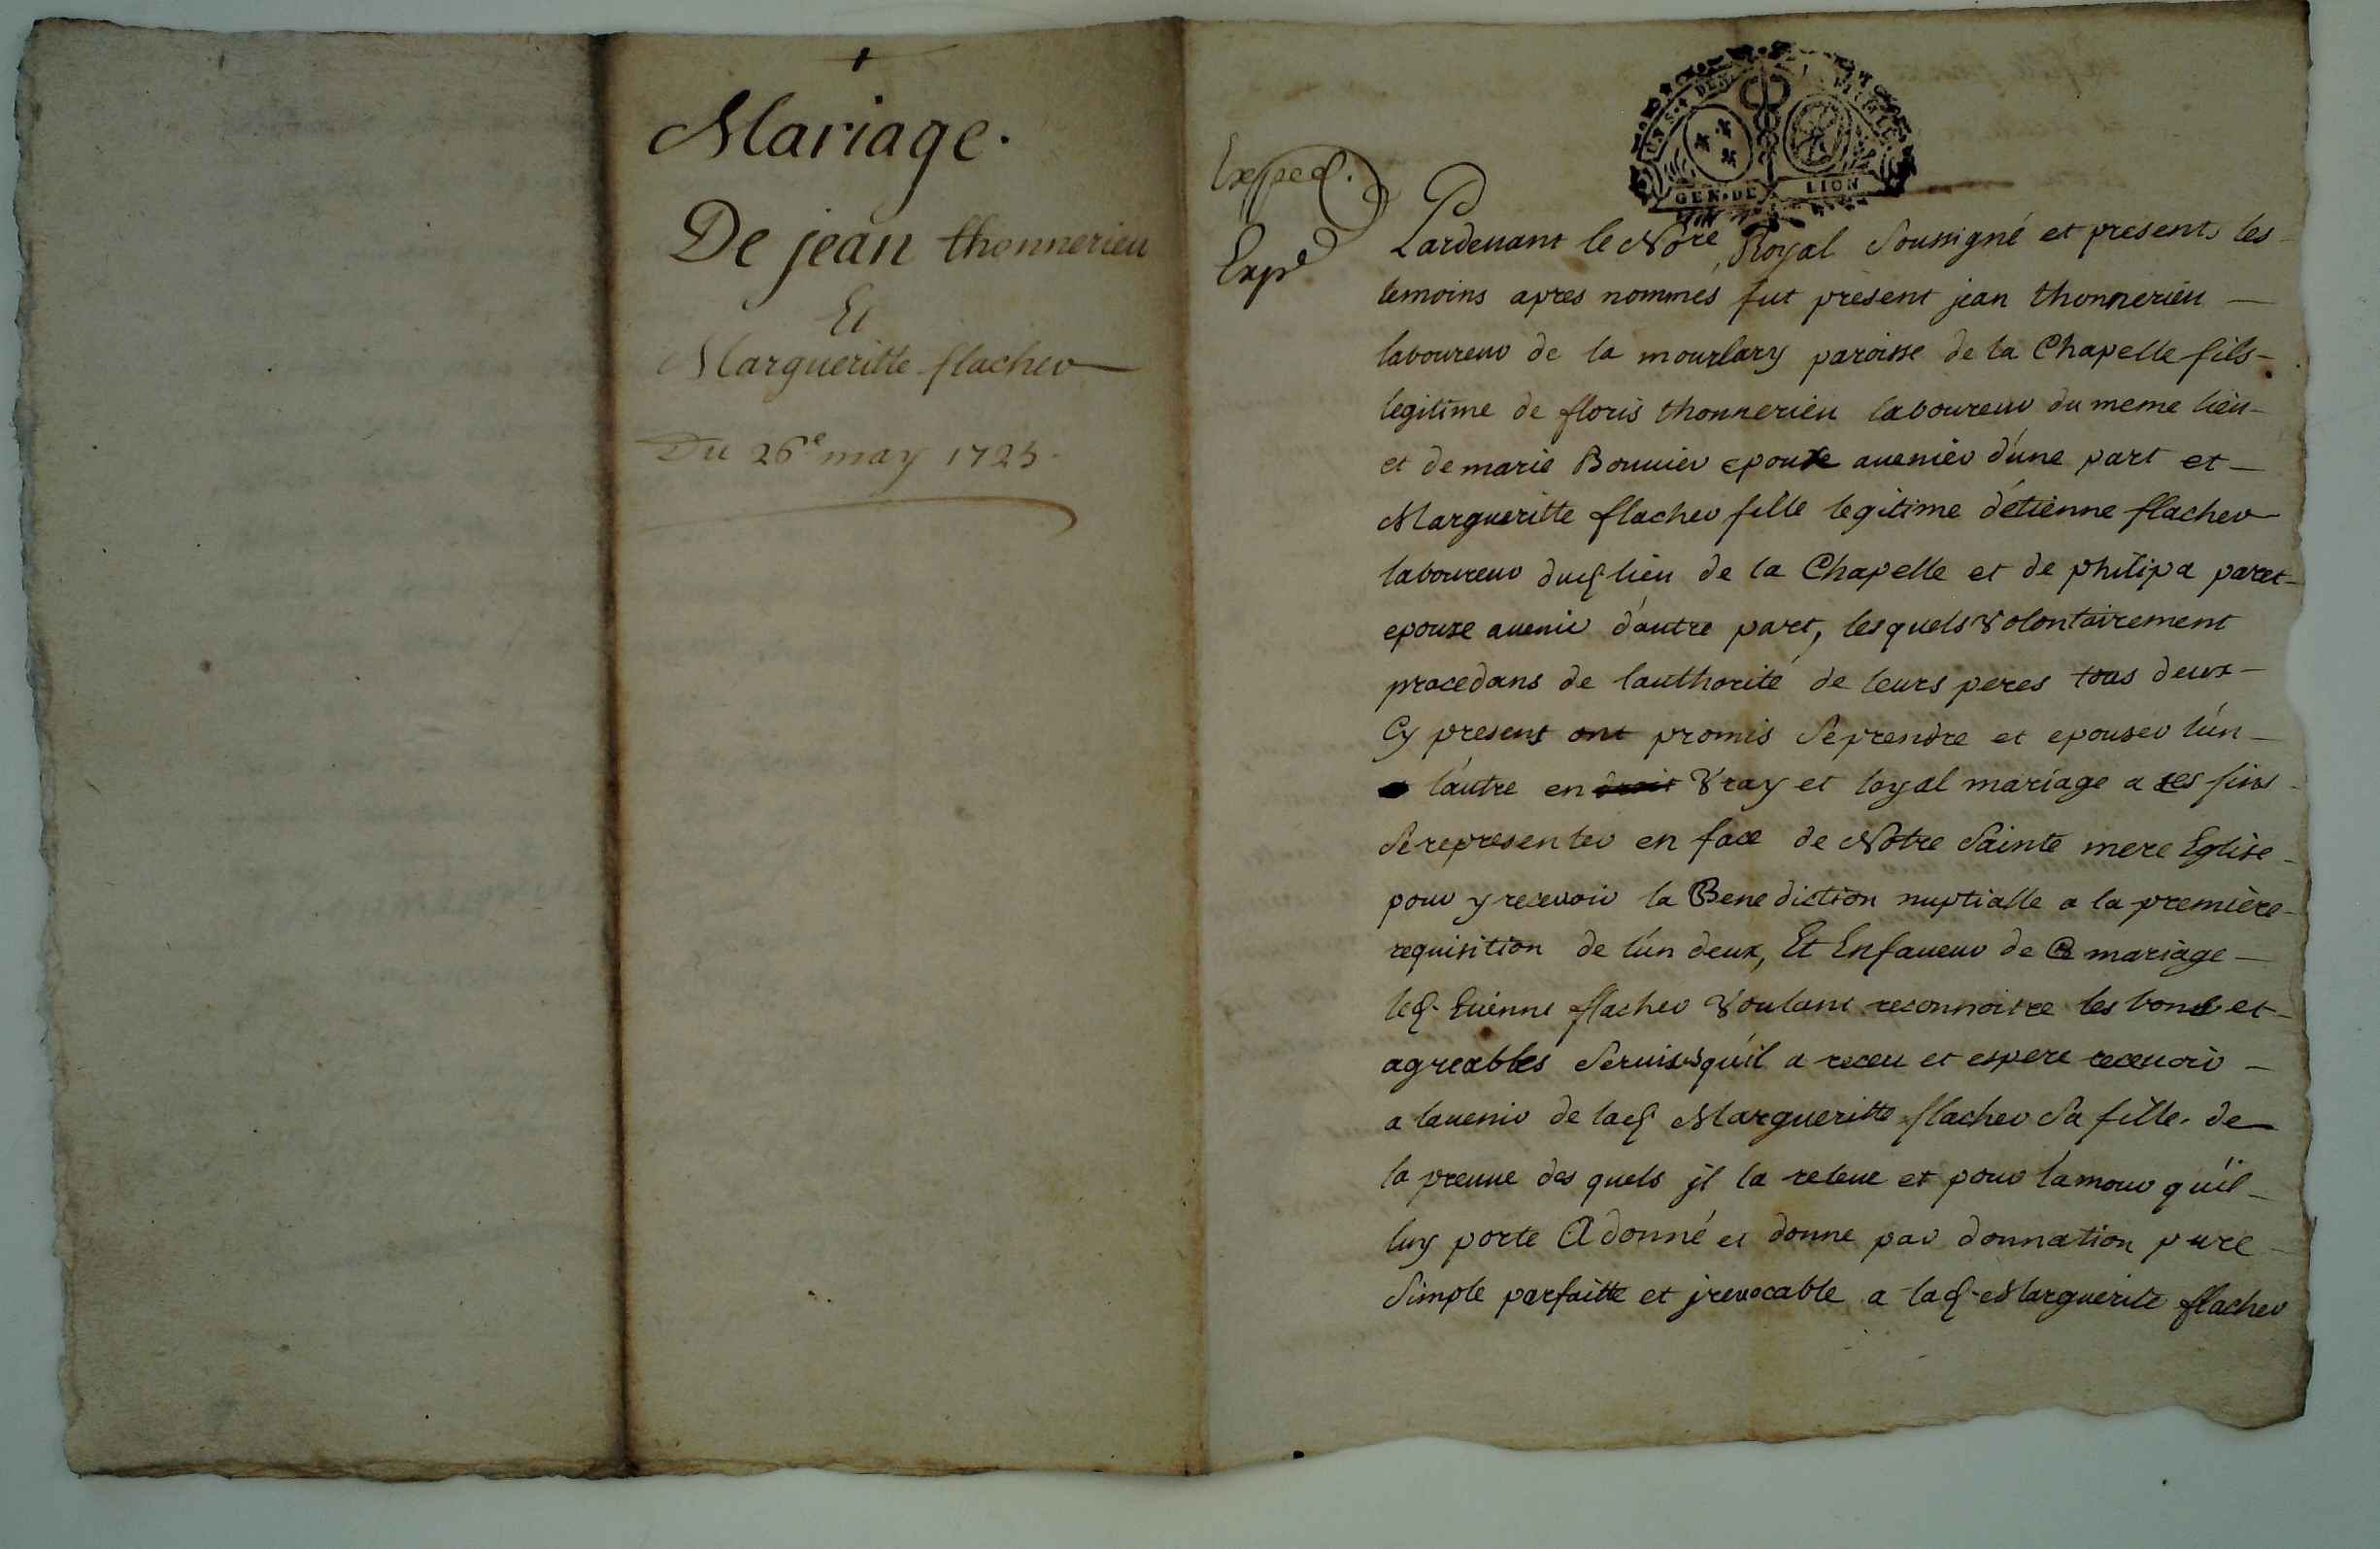 Mariage.
De jean thonnerieu
Et
Margueritte flacher
Du 26e may 1725.
Exped.
Expd
GEN·DE LION
Pardevant le Nore Royal Soussigné et presents les
temoins apres nommés fut present jean thonnerieu
laboureur de la mourlary paroisse de la Chapelle fils
legitime de floris thonnerieu laboureur du meme lieu
et de marie Bonnier epoux avenier d'une part et
Margueritte flacher fille legitime d'etienne flacher
laboureur dud lieu de la Chapelle et de philipa paret
epouze avenir d'autre part, lesquels volontairement
procedans de l'authorité de leurs peres tous deux
Cy present ont promis Se prendre et epouser l'un
l'autre en droit Vray et loyal mariage a ces fins
Se representer en face de Notre Sainte mere Eglise
pour y recevoir la Benediction nuptialle a la premiere
requisition de l'un deux, Et En faveur de Ce mariage
led. Etienne flacher Voulant reconnoitre les bons et
agreables Services qu'il a receu et espere recevoir
a lavenir de lad Margueritte flacher Sa fille de
la preuve des quels jl la releve et pour lamour qu'il
luy porte A donné et donne par donnation pure
Simple parfaitte et jrevocable a lad. Marguerite flacher